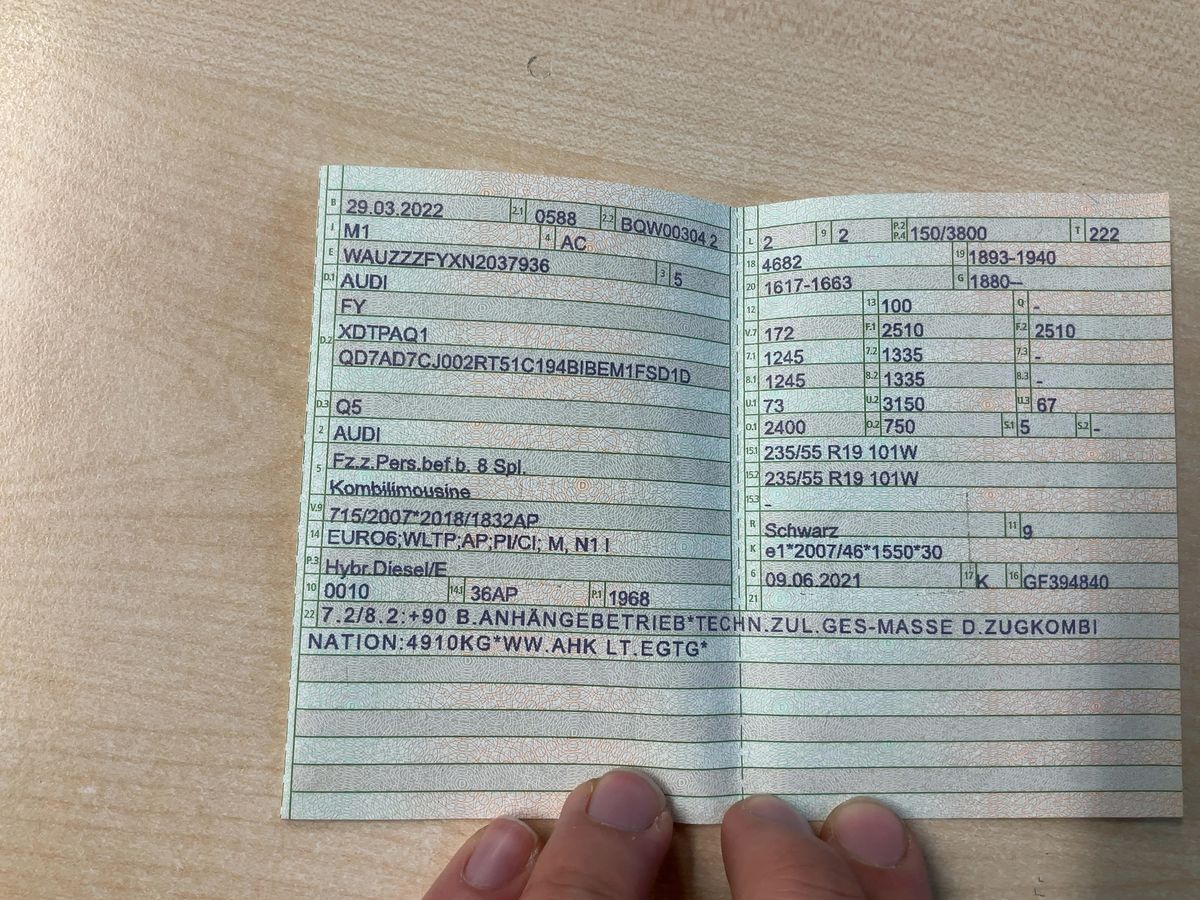 B 29.03.2022 2.1 0588 2.2 BQW00304 2
J M1 4 AC
E WAUZZZFYXN2037936 3 5
D.1 AUDI
FY
D.2 XDTPAQ1
QD7AD7CJ002RT51C194BIBEM1FSD1D
D.3 Q5
2 AUDI
5 Fz.z.Pers.bef.b. 8 Spl.
Kombilimousine
V.9 715/2007*2018/1832AP
14 EURO6;WLTP;AP;PI/CI; M, N1 I
P.3 Hybr.Diesel/E
10 0010 14.1 36AP P.1 1968
L 2 9 2 P.2 P.4 150/3800 T 222
18 4682 19 1893-1940
20 1617-1663 G 1880--
12 13 100 Q -
V.7 172 F.1 2510 F.2 2510
7.1 1245 7.2 1335 7.3 -
8.1 1245 8.2 1335 8.3 -
U.1 73 U.2 3150 U.3 67
O.1 2400 O.2 750 S.1 5 S.2 -
15.1 235/55 R19 101W
15.2 235/55 R19 101W
15.3 -
R Schwarz 11 9
K e1*2007/46*1550*30
6 09.06.2021 17 K 16 GF394840
21
22 7.2/8.2:+90 B.ANHÄNGEBETRIEB*TECHN.ZUL.GES-MASSE D.ZUGKOMBI
NATION:4910KG*WW.AHK LT.EGTG*